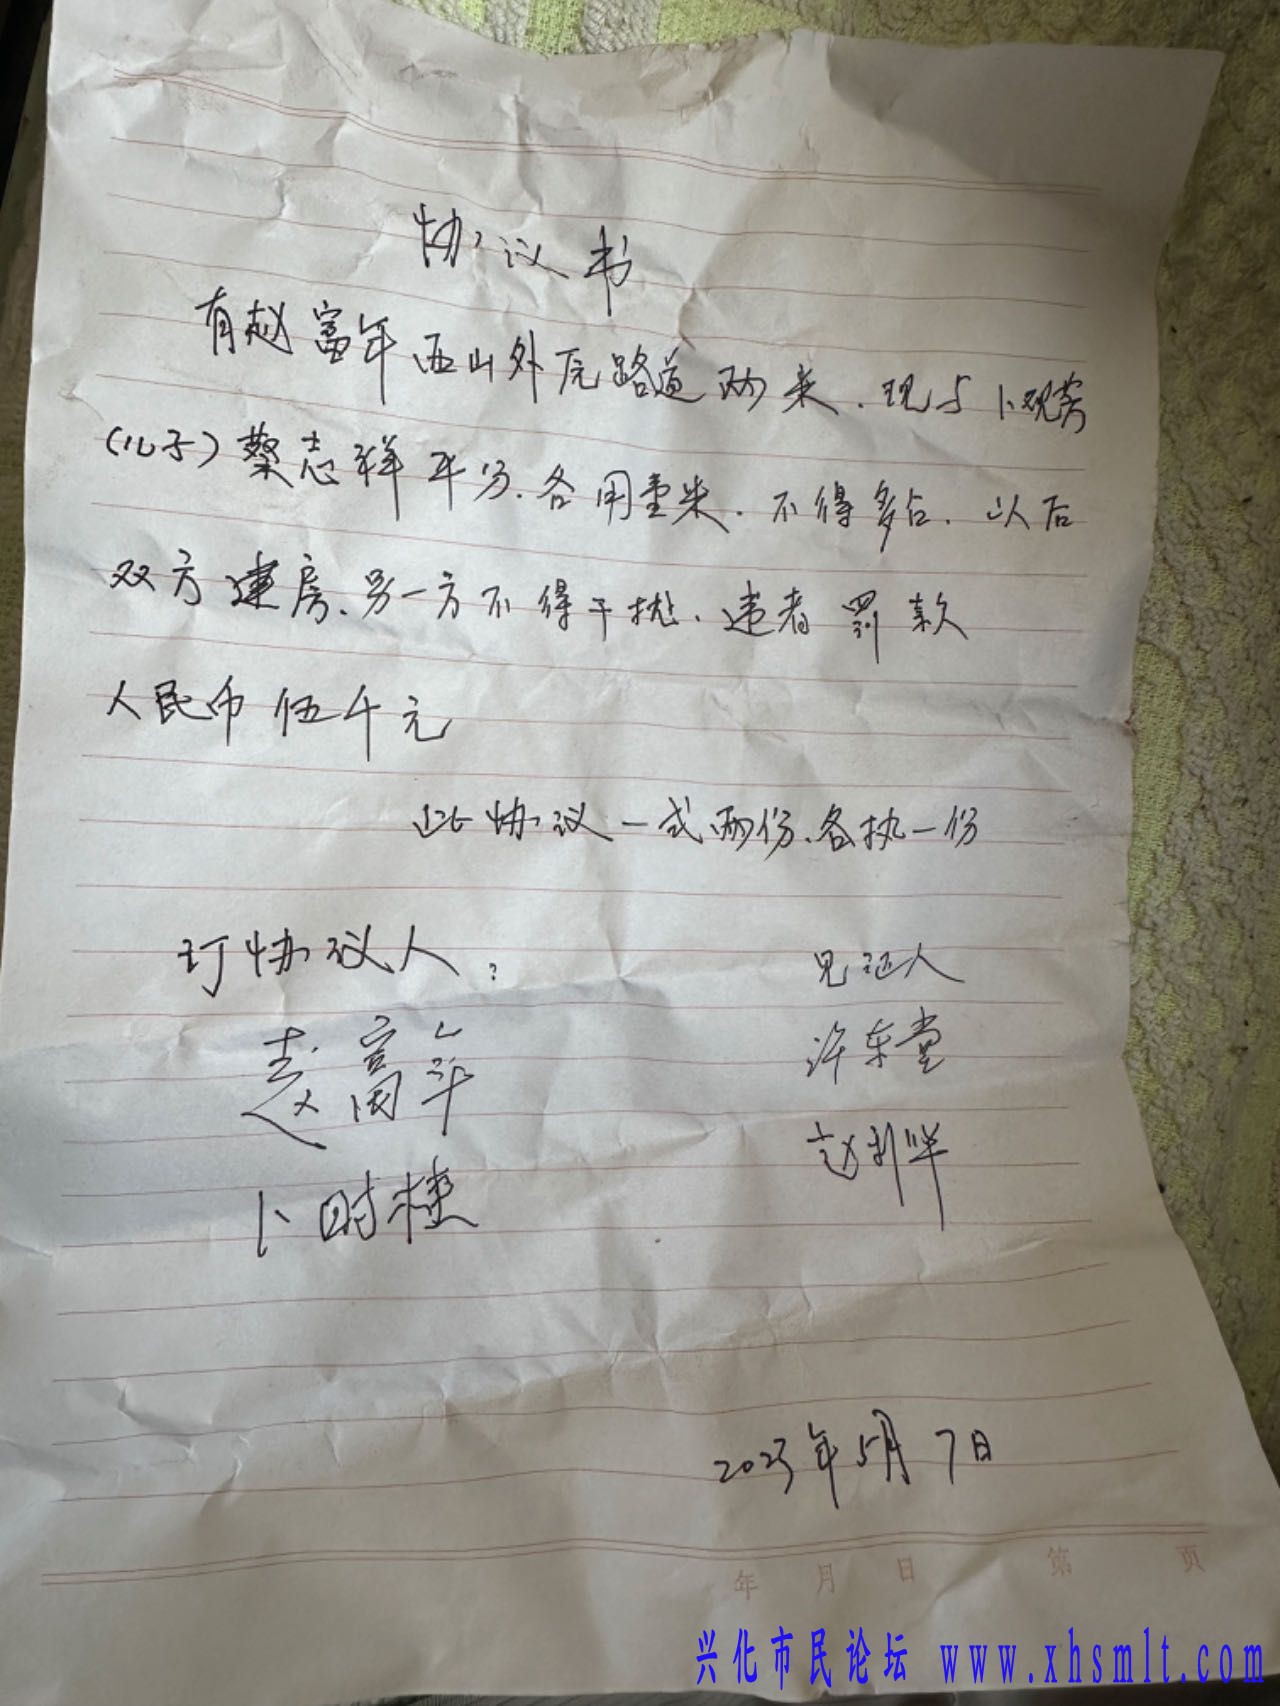 协议书
有赵富年西山外有路道两米.现与卜观芳
(儿子)蔡志祥平分.各用壹米.不得多占.以后
双方建房.另一方不得干扰.违者罚款
人民币伍仟元
此协议一式两份.各执一份
订协议人:
见证人
赵富年
许东堂
卜时楼
赵利华
2023年5月7日
年 月 日 第 页
兴化市民论坛 www.xhsmlt.com